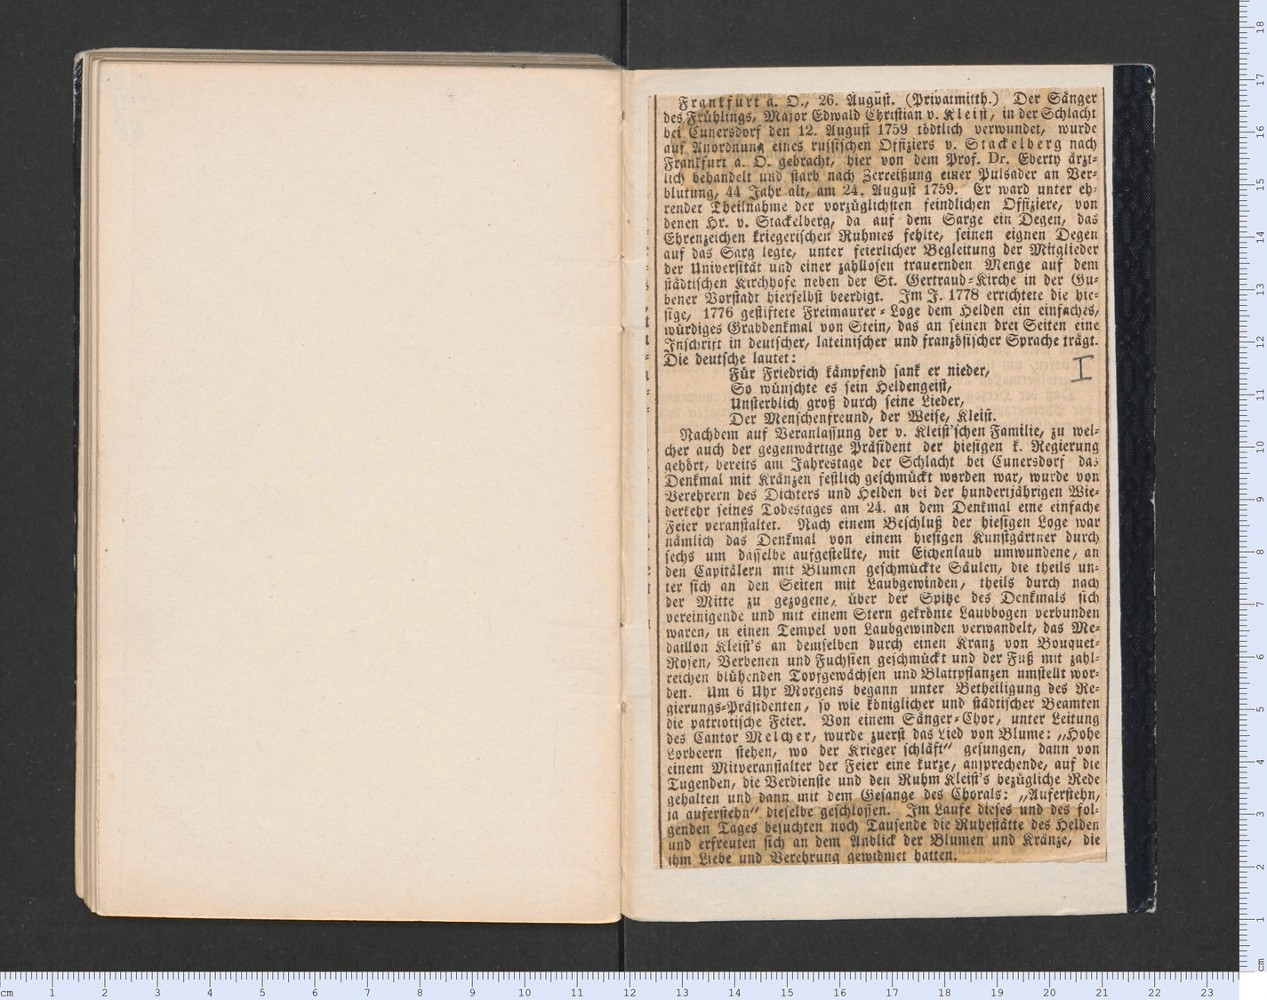 Frankfurt a. O., 26. August. (Privatmitth.) Der Sänger
des Frühlings, Major Edwald Christian v. Kleist, in der Schlacht
bei Cunersdorf den 12. August 1759 tödtlich verwundet, wurde
auf Anordnung eines russischen Offiziers v. Stackelberg nach
Frankfurt a. O. gebracht, hier von dem Prof. Dr. Eberty ärzt-
lich behandelt und starb nach Zerreißung einer Pulsader an Ver-
blutung, 44 Jahr alt, am 24. August 1759. Er ward unter eh-
render Theilnahme der vorzüglichsten feindlichen Offiziere, von
denen Hr. v. Stackelberg, da auf dem Sarge ein Degen, das
Ehrenzeichen kriegerischen Ruhmes fehlte, seinen eignen Degen
auf das Sarg legte, unter feierlicher Begleitung der Mitglieder
der Universität und einer zahllosen trauernden Menge auf dem
städtischen Kirchhofe neben der St. Gertraud-Kirche in der Gu-
bener Vorstadt hierselbst beerdigt. Im J. 1778 errichtete die hie-
sige, 1776 gestiftete Freimaurer-Loge dem Helden ein einfaches,
würdiges Grabdenkmal von Stein, das an seinen drei Seiten eine
Inschrift in deutscher, lateinischer und französischer Sprache trägt.
Die deutsche lautet:
Für Friedrich kämpfend sank er nieder,
So wünschte es sein Heldengeist,
Unsterblich groß durch seine Lieder,
Der Menschenfreund, der Weise, Kleist.
I
Nachdem auf Veranlassung der v. Kleist'schen Familie, zu wel-
cher auch der gegenwärtige Präsident der hiesigen k. Regierung
gehört, bereits am Jahrestage der Schlacht bei Cunersdorf das
Denkmal mit Kränzen festlich geschmückt worden war, wurde von
Verehrern des Dichters und Helden bei der hundertjährigen Wie-
derkehr seines Todestages am 24. an dem Denkmal eine einfache
Feier veranstaltet. Nach einem Beschluß der hiesigen Loge war
nämlich das Denkmal von einem hiesigen Kunstgärtner durch
sechs um dasselbe aufgestellte, mit Eichenlaub umwundene, an
den Capitälern mit Blumen geschmückte Säulen, die theils un-
ter sich an den Seiten mit Laubgewinden, theils durch nach
der Mitte zu gezogene, über der Spitze des Denkmals sich
vereinigende und mit einem Stern gekrönte Laubbogen verbunden
waren, in einen Tempel von Laubgewinden verwandelt, das Me-
daillon Kleist's an demselben durch einen Kranz von Bouquet-
Rosen, Verbenen und Fuchsien geschmückt und der Fuß mit zahl-
reichen blühenden Topfgewächsen und Blattpflanzen umstellt wor-
den. Um 6 Uhr Morgens begann unter Betheiligung des Re-
gierungs-Präsidenten, so wie königlicher und städtischer Beamten
die patriotische Feier. Von einem Sänger-Chor, unter Leitung
des Cantor Melcher, wurde zuerst das Lied von Blume: „Hohe
Lorbeern stehen, wo der Krieger schläft“ gesungen, dann von
einem Mitveranstalter der Feier eine kurze, ansprechende, auf die
Tugenden, die Verdienste und den Ruhm Kleist's bezügliche Rede
gehalten und dann mit dem Gesange des Chorals: „Auferstehn,
ja auferstehn“ dieselbe geschlossen. Im Laufe dieses und des fol-
genden Tages besuchten noch Tausende die Ruhestätte des Helden
und erfreuten sich an dem Anblick der Blumen und Kränze, die
ihm Liebe und Verehrung gewidmet hatten.